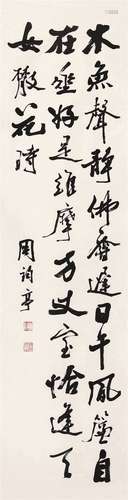 木魚聲靜佛齋遲日午風簾自
在垂好是維摩方丈室恰逢天
女散花時
周亭